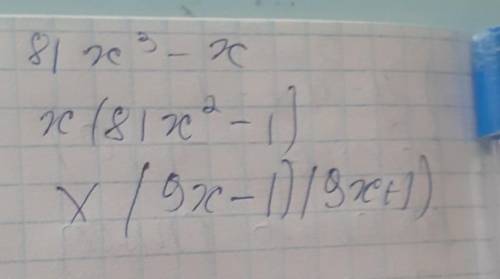 81 x³ - x
x (81x² - 1)
x (9x - 1)(9x + 1)